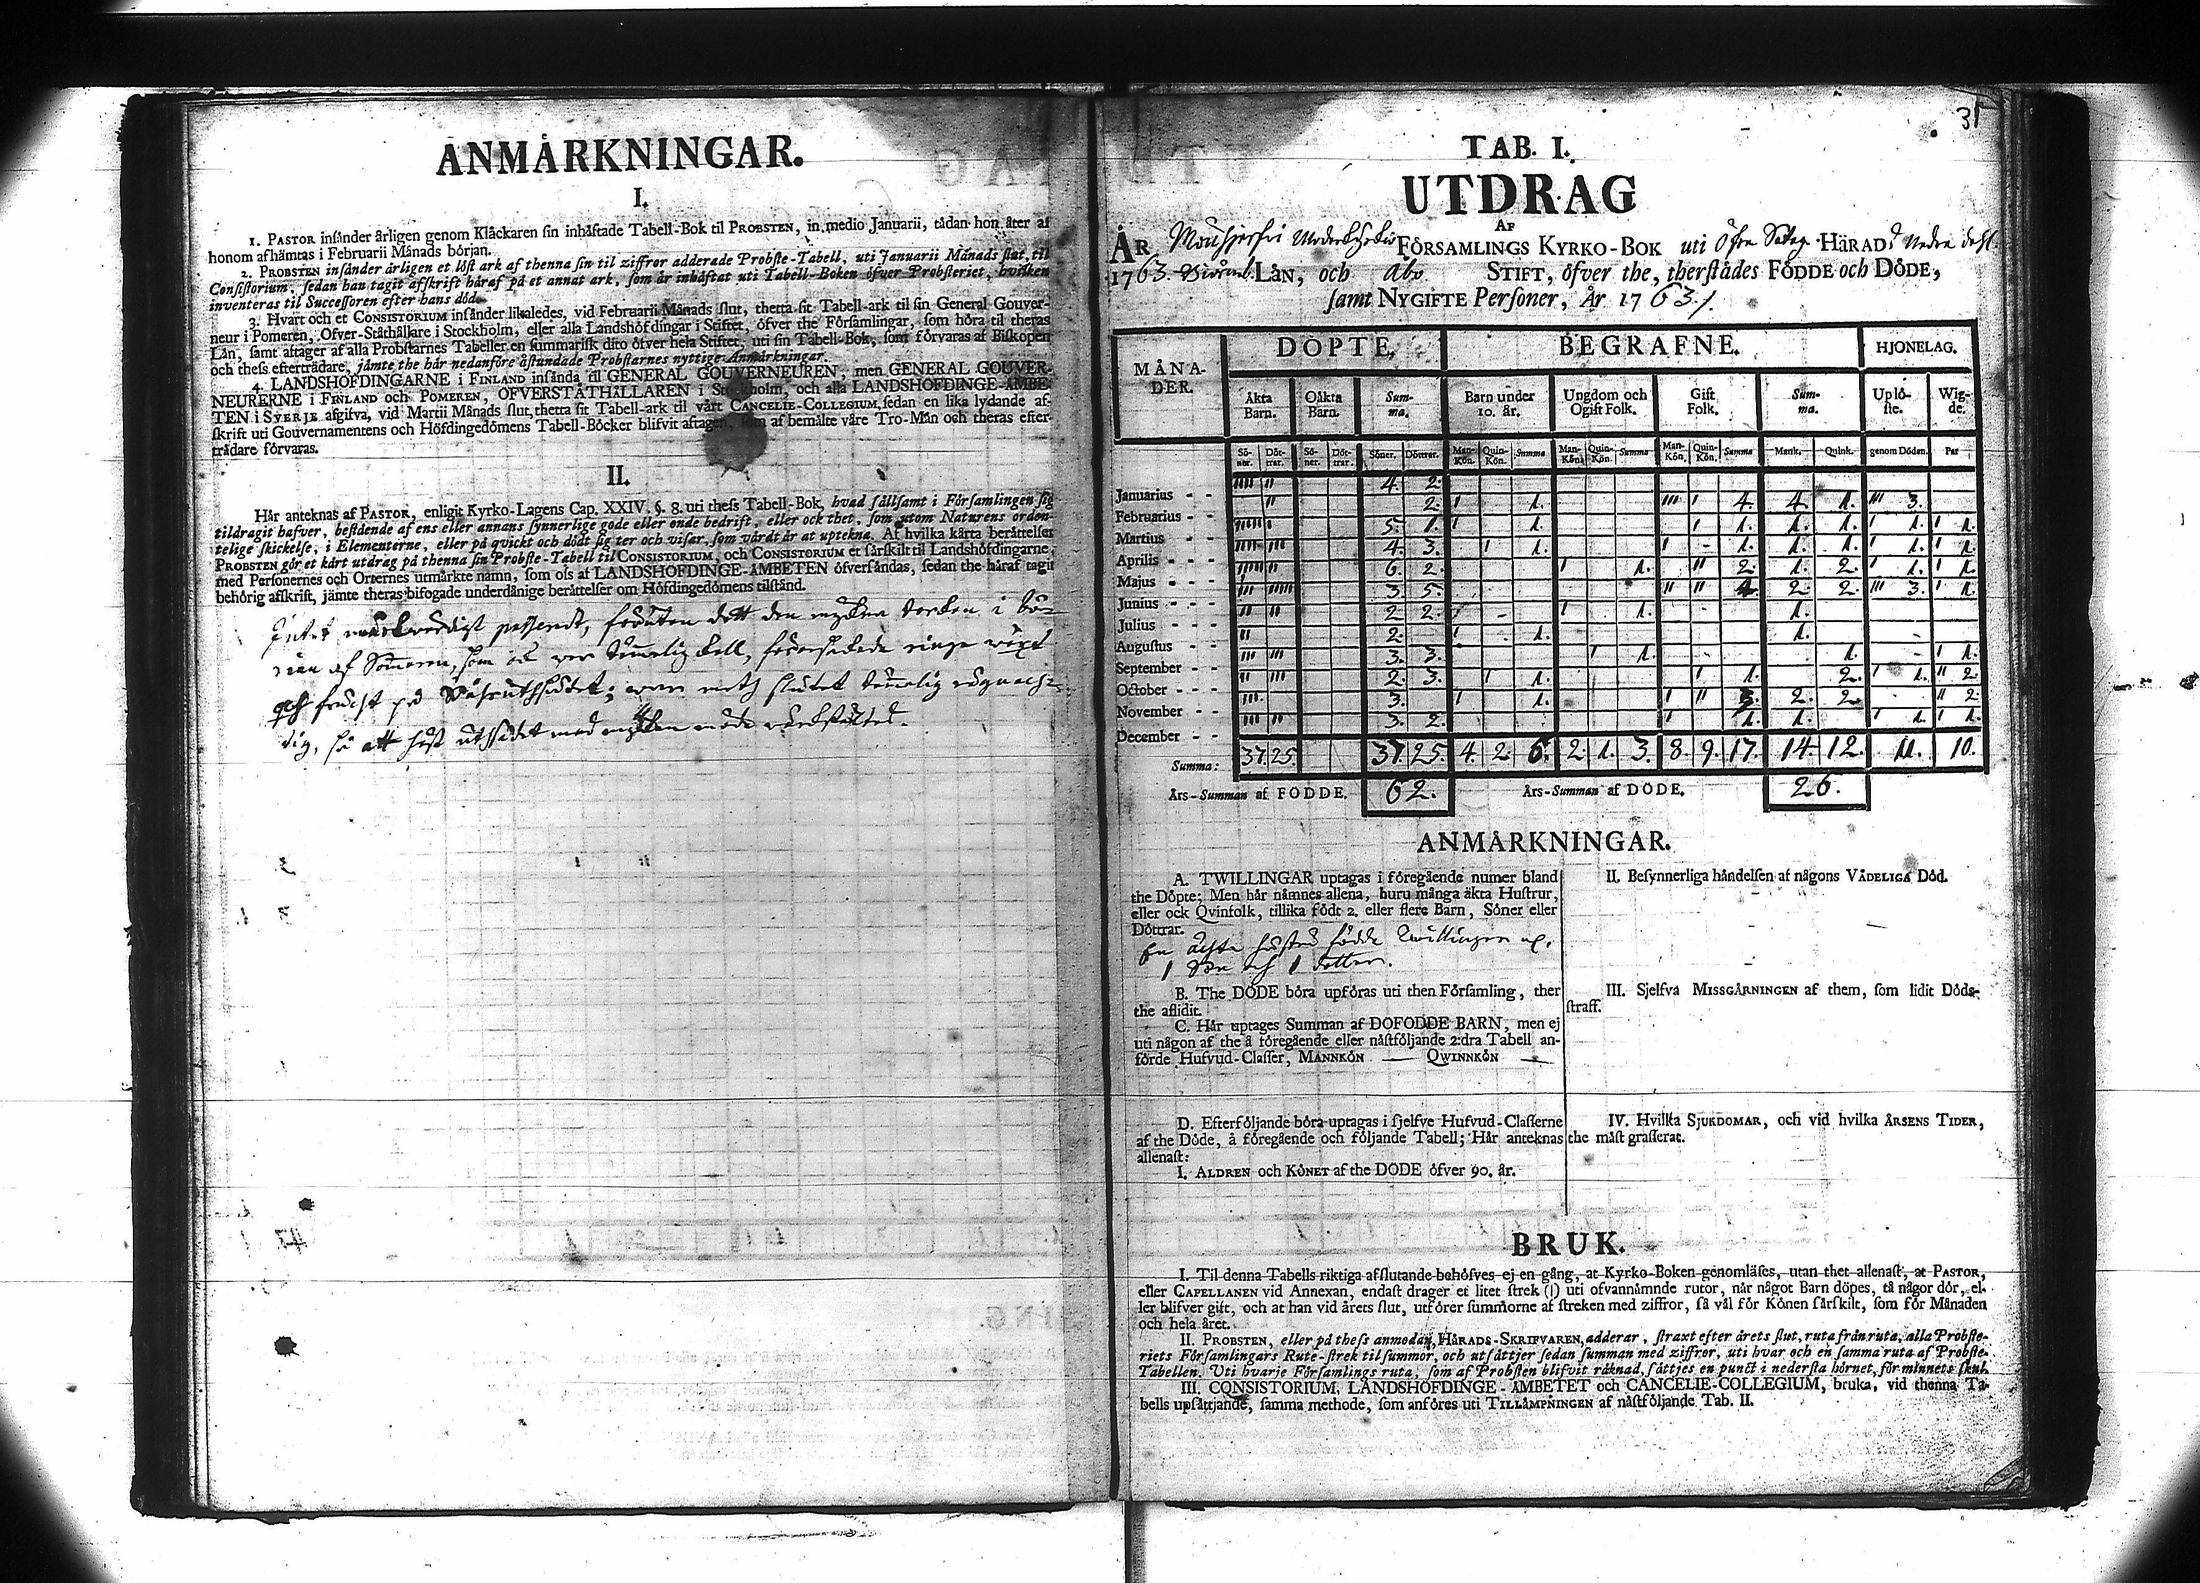 ANMÄRKNINGAR.
I.
1. PASTOR insänder årligen genom Klåckaren sin inhäftade Tabell-Bok til PROBSTEN, in medio Januarii, tädan hon åter af
honom afhämtas i Februarii Månads början.
2. PROBSTEN insänder årligen et löst ark af thenna sin til ziffror adderade Probste-Tabell, uti Januarii Månads slut, til
Consistorium, sedan han tagit afskrift häraf på et annat ark, som är inhäftat uti Tabell-Boken öfver Probsteriet, hvilken
inventeras til Successoren efter hans död.
3. Hvart och et CONSISTORIUM insänder likaledes, vid Februarii Månads slut, thetta sit Tabell-ark til sin General Gouver-
neur i Pomeren, Öfver-Ståthållare i Stockholm, eller alla Landshöfdingar i Stiftet, öfver the Församlingar, som höra til theras
Län, samt aftager af alla Probstarnes Tabeller en summarisk dito öfver hela Stiftet, uti sin Tabell-Bok, som förvaras af Biskopen
och thess efterträdare, jämte the här nedanföre åstundade Probstarnes nyttige Anmärkningar.
4. LANDSHÖFDINGARNE i FINLAND insända til GENERAL GOUVERNEUREN, men GENERAL GOUVER-
NEURERNE i FINLAND och POMEREN, ÖFVERSTÅTHÅLLAREN i Stockholm, och alla LANDSHÖFDINGE-ÄMBE-
TEN i SVERJE afgifva, vid Martii Månads slut, thetta sit Tabell-ark til vårt CANCELIE-COLLEGIUM, sedan en lika lydande af-
skrift uti Gouvernamentens och Höfdingedömens Tabell-Böcker blifvit aftagen, som af bemälte våre Tro-Män och theras efter-
trädare förvaras.
II.
Här anteknas af PASTOR, enligit Kyrko-Lagens Cap. XXIV. §. 8. uti thess Tabell-Bok, hvad sällsamt i Församlingen sig
tildragit hafver, bestående af ens eller annans synnerlige gode eller onde bedrift, eller ock thet, som utom Naturens orden-
telige skickelse, i Elementerne, eller på qvickt och dödt sig ter och visar, som värdt är at uptekna. Af hvilka kårta berättelser
PROBSTEN gör et kårt utdrag på thenna sin Probste-Tabell til CONSISTORIUM, och CONSISTORIUM et särskilt til Landshöfdingarne,
med Personernes och Orternes utmärkte namn, som ofs af LANDSHÖFDINGE-ÄMBETEN öfversändas, sedan the häraf tagit
behörig afskrift, jämte theras bifogade underdånige berättelser om Höfdingedömens tilstånd.
Intet märkvärdigt passerat, förutan dett den myckna torkan i bör-
jan af Sommaren, som
och frucst på
dig, så att
31
TAB. I.
UTDRAG
AF
ÅR Mouhijerfvi Moderkyrkio FÖRSAMLINGS KYRKO-BOK uti Öfre Satag. HÄRADS Nedre dehl
1763. Biörneb. LÄN, och Åbo STIFT, öfver the, therstädes FÖDDE och DÖDE,
samt NYGIFTE Personer, År 1763.
MÅNA-DER. DÖPTE. BEGRAFNE. HJONELAG.
Äkta Barn. Oäkta Barn. Sum-ma. Barn under 10. år. Ungdom och Ogift Folk. Gift Folk. Sum-ma. Uplö-ste. Wig-de.
Sö-ner. Döt-trar. Sö-ner. Döt-trar. Söner. Döttrar. Man-Kön. Quin-Kön. Summa Man-Kön. Quin-Kön. Summa Man-Kön. Quin-Kön. Summa Mank. Quink. genom Döden. Par
Januarius - - 4. 2.
Februarius - - 2. 1. 4. 4. 1. 3.
Martius - - 5. 1. 1. 1. 1. 1. 1. 1.
Aprilis - - - 4. 3. 1. 1. 1. 1. 1. 1.
Majus - - - 6. 2. 1. 2. 1. 2. 1. 1.
Junius - - - 3. 5. 4. 2. 2. 3. 1.
Julius - - - 2. 2. 1. 1.
Augustus - - 2. 1. 1.
September - - 3. 3. 1. 1. 1.
October - - - 2. 3. 1. 1. 2. 1. 2.
November - - 3. 1. 3. 2. 2. 2.
December - - 3. 2. 1. 1. 1. 1.
Summa: 37. 25. 37. 25. 4. 2. 6. 2. 1. 3. 8. 9. 17. 14. 12. 11. 10.
Års-Summan af FÖDDE. 62. Års-Summan af DÖDE. 26.
ANMÄRKNINGAR.
A. TWILLINGAR uptagas i föregående numer bland
the Döpte; Men här nämnes allena, huru många äkta Hustrur,
eller ock Qvinfolk, tillika födt 2. eller flere Barn, Söner eller
Döttrar.
En ächta hustru födde Twillingar
1 Son och 1 dotter.
B. The DÖDE böra upföras uti then Församling, ther
the aflidit.
C. Här uptages Summan af DÖFÖDDE BARN, men ej
uti någon af the å föregående eller nästföljande 2:dra Tabell an-
förde Hufvud-Classer, MANNKÖN — QWINNKÖN —
D. Efterföljande böra uptagas i sjelfve Hufvud-Classerne
af the Döde, å föregående och följande Tabell; Här anteknas
allenast:
I. ÅLDREN och KÖNET af the DÖDE öfver 90. år.
II. Besynnerliga händelsen af någons VÅDELIGA Död.
III. Sjelfva MISSGÄRNINGEN af them, som lidit Döds-
straff.
IV. Hvilka SJUKDOMAR, och vid hvilka ÅRSENS TIDER,
the mäst grasserat.
BRUK.
I. Til denna Tabells riktiga afslutande behöfves ej en gång, at Kyrko-Boken genomläses, utan thet allenast, at PASTOR,
eller CAPELLANEN vid Annexan, endast drager et litet strek (|) uti ofvannämnde rutor, når något Barn döpes, tå någor dör, el-
ler blifver gift, och at han vid årets slut, utförer summorne af streken med ziffror, så väl för Könen särskilt, som för Månaden
och hela året.
II. PROBSTEN, eller på thess anmodan, HÄRADS-SKRIFVAREN, adderar, straxt efter årets slut, ruta från ruta, alla Probste-
riets Församlingars Rute-strek til summor, och utsättjer sedan summan med ziffror, uti hvar och en samma ruta af Probste-
Tabellen. Uti hvarje Församlings ruta, som af Probsten blifvit räknad, sättjes en punct i nedersta hörnet, för minnets skul.
III. CONSISTORIUM, LANDSHÖFDINGE-ÄMBETET och CANCELIE-COLLEGIUM, bruka, vid thenna Ta-
bells upsättjande, samma methode, som anföres uti TILLÄMPNINGEN af nästföljande Tab. II.